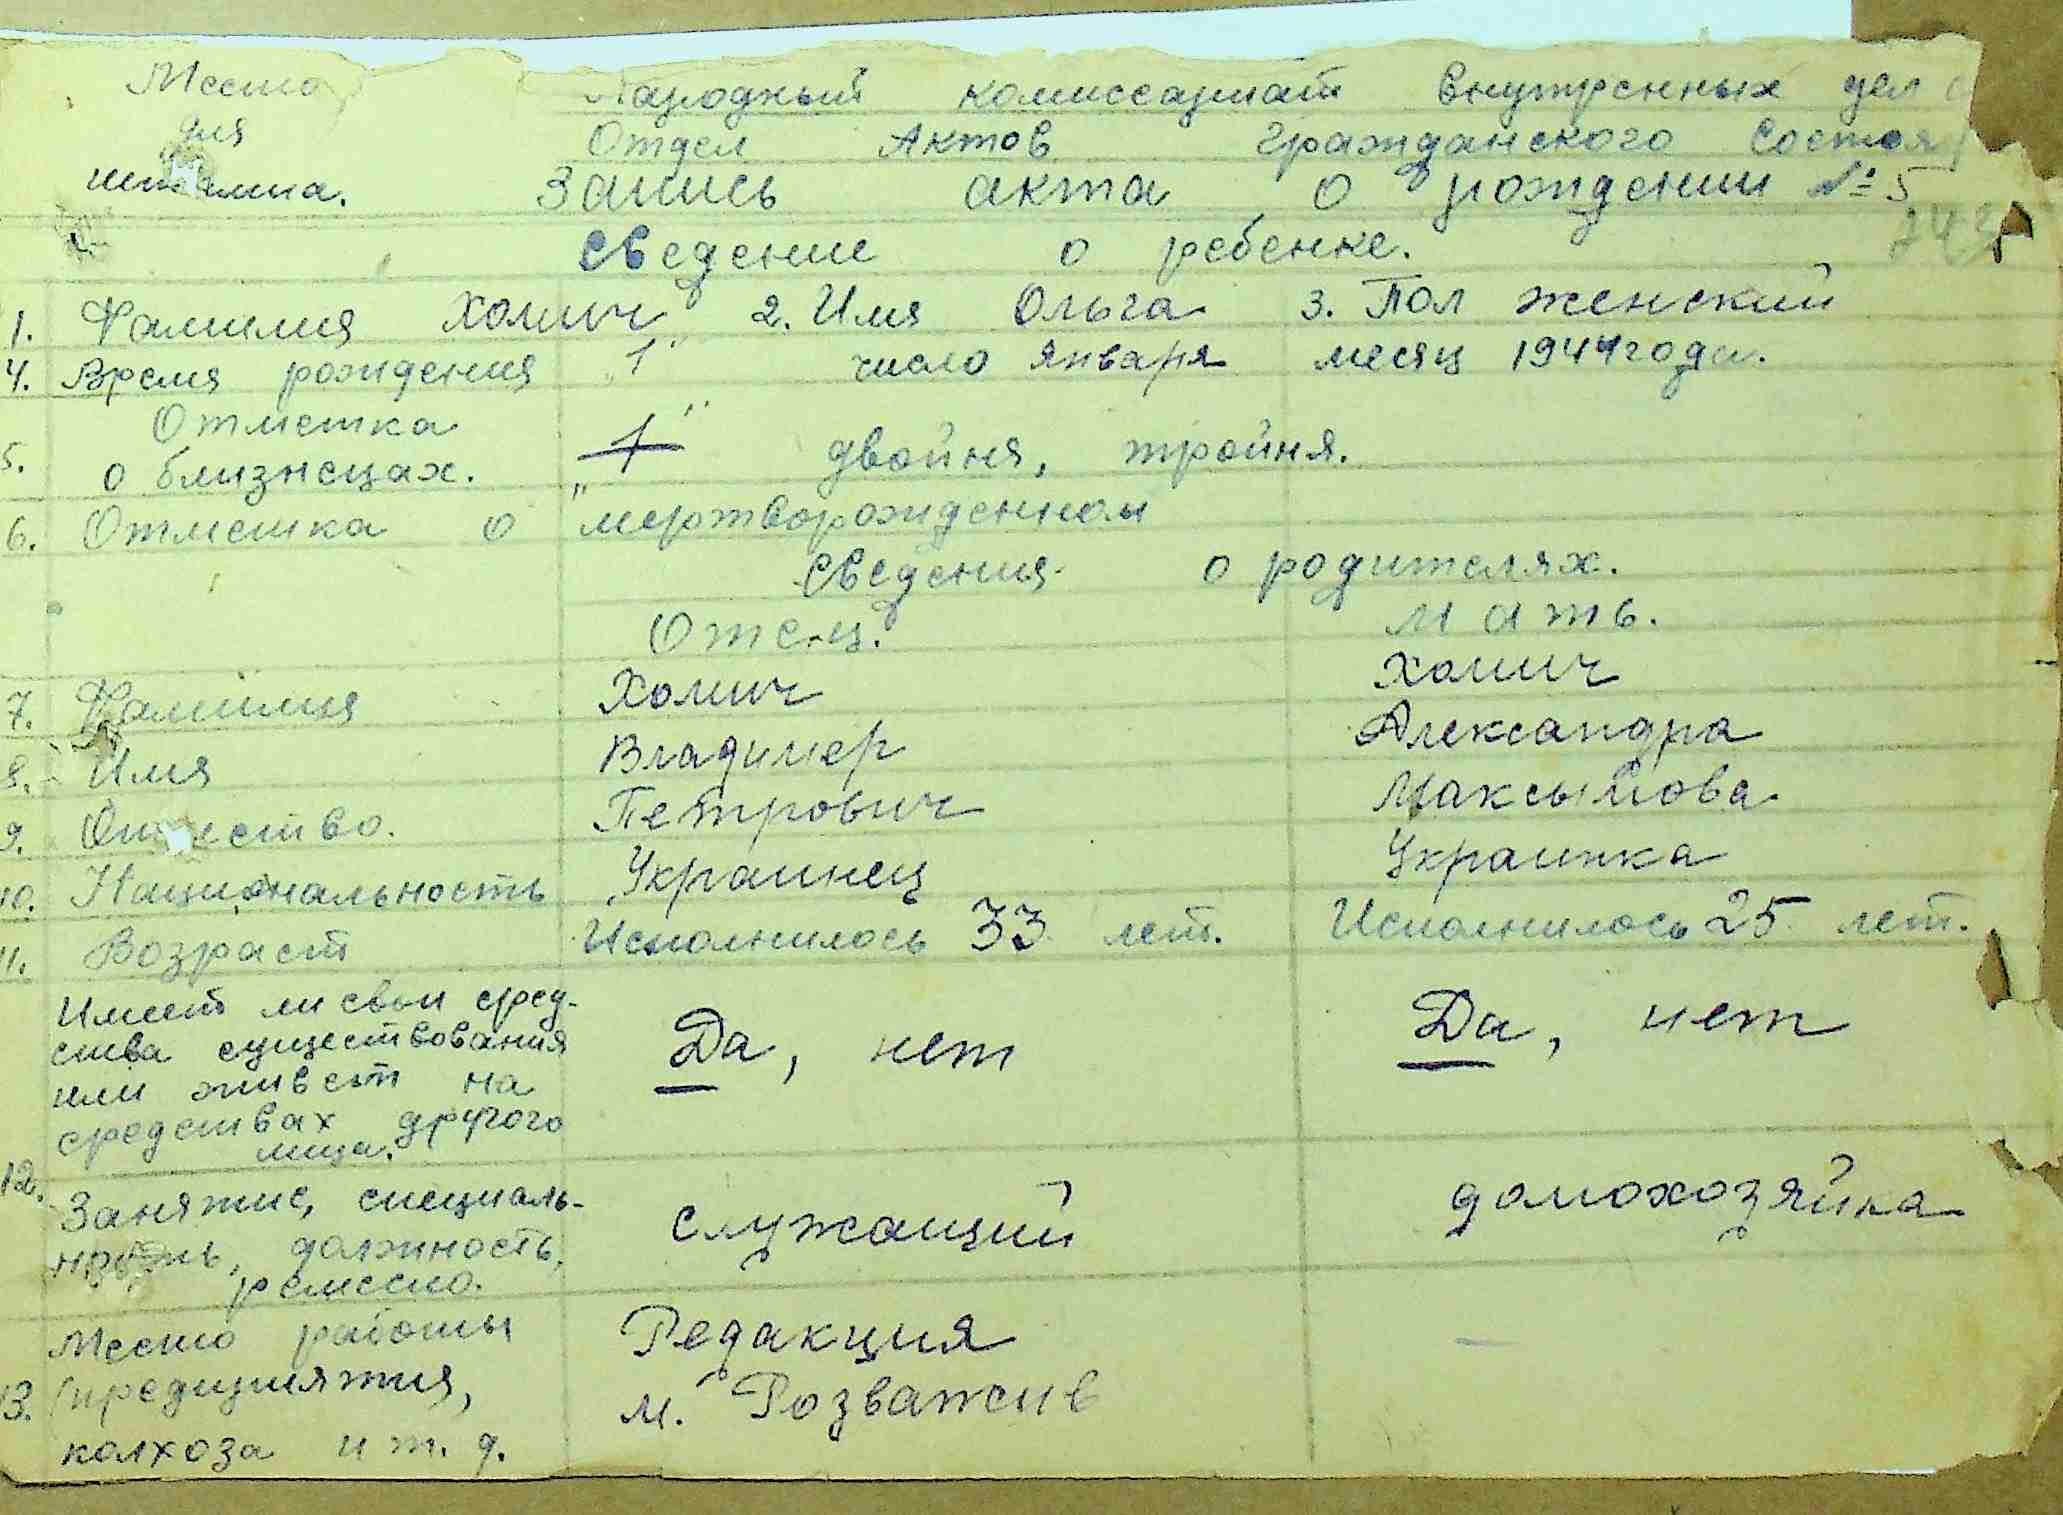 Место
для
штампа.
Народный комиссариат внутренных дел
Отдел Актов Гражданского Состоя
Запись акта о рождении № 5
743
Сведение о ребенке.
1. Фамилия Хомич 2. Имя Ольга 3. Пол женский
4. Время рождения "1" число января месяц 1944 года.
5. Отметка о близнецах. "1" двойня, тройня.
6. Отметка о "мертворожденном
Сведения о родителях.
Отец. Мать.
7. Фамилия Хомич Хомич
8. Имя Владимер Александра
9. Отчество. Петрович Максымова
10. Национальность Украинец Украинка
11. Возраст Исполнилось 33 лет. Исполнилось 25 лет.
Имеет ли свои сред-
ства существования Да, нет Да, нет
или живет на
средствах другого
лица.
12. Занятие, специаль-
ность, должность, служащий домохозяйка
ремесло.
Место работы Редакция —
13. (предприятия, м. Розважив
колхоза и т. д.